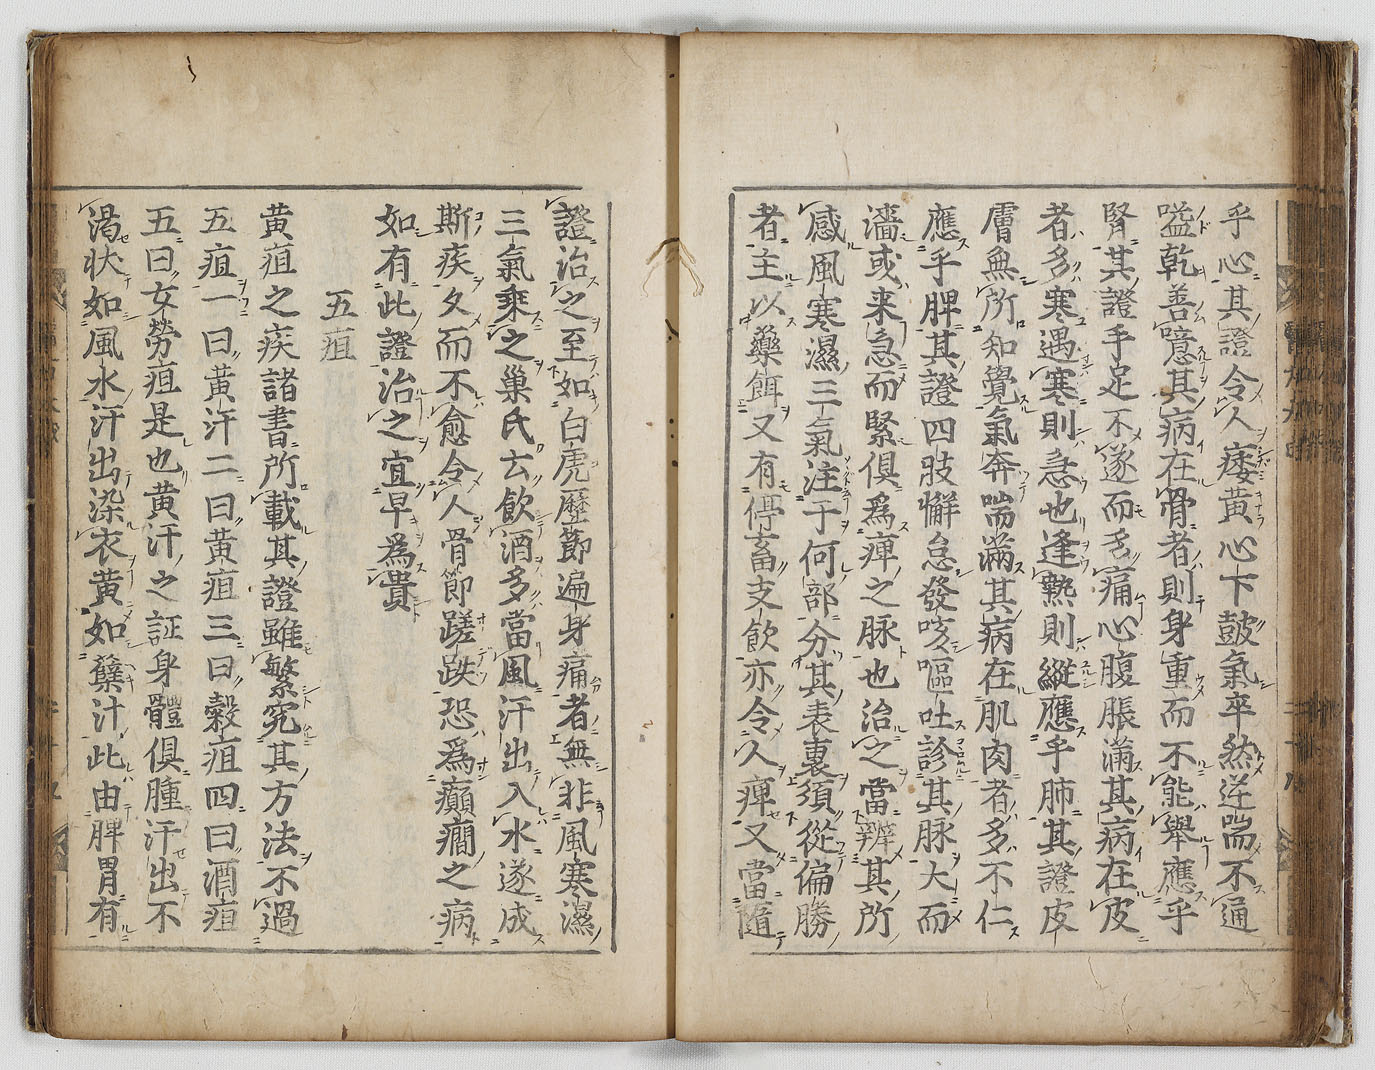 乎心其證令人痿黄心下皷氣卒然逆喘不通
嗌乾善噫其病在骨者則身重而不能舉應乎
腎其證手足不遂而多痛心腹脹滿其病在皮
者多寒遇寒則急也逢熱則縱應乎肺其證皮
膚無所知覺氣奔喘滿其病在肌肉者多不仁
應乎脾其證四肢懈怠發咳嘔吐診其脉大而
濇或来急而緊俱爲痺之脉也治之當辨其所
感風寒濕三氣注于何部分其表裏須從偏勝
者主以藥餌又有停畜支飲亦令人痺又當隨
證治之至如白虎歷節遍身痛者無非風寒濕
三氣乘之巢氏云飲酒多當風汗出入水遂成
斯疾久而不愈令人骨節蹉跌恐爲癲癇之病
如有此證治之宜早爲貴
五疸
黄疸之疾諸書所載其證雖繁究其方法不過
五疸一曰黄汗二曰黄疸三曰穀疸四曰酒疸
五曰女勞疸是也黄汗之証身體俱腫汗出不
渴状如風水汗出染衣黄如蘖汁此由脾胃有